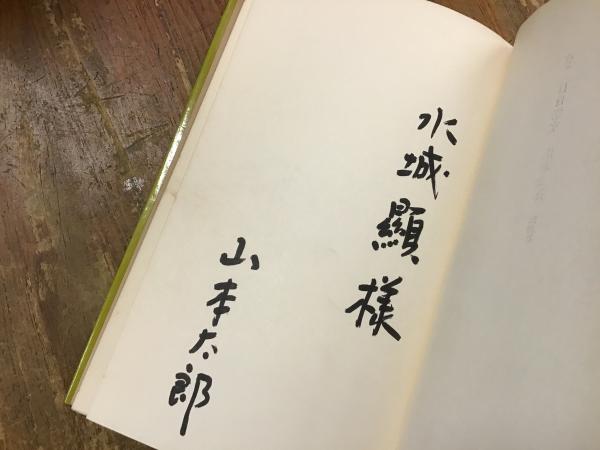 水城顯様
山本太郎